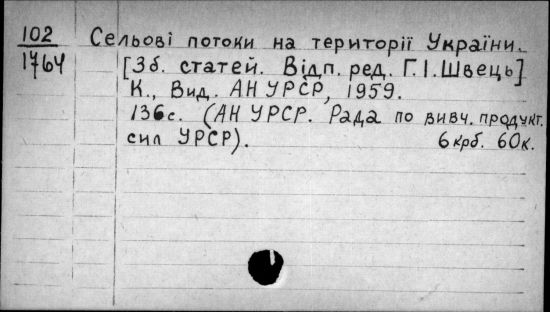 102
1764
Сельові потоки на території України.
[Зб. статей. Відп. ред. Г.І. Швець]
К., Вид. АН УРСР, 1959.
136с. (АН УРСР. Рада по вивч. продукт.
сил УРСР). 6 крб. 60к.